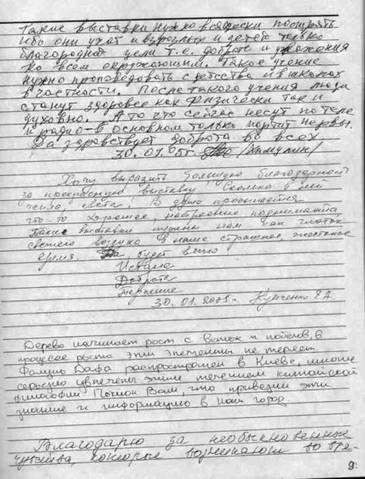 Такие выставки нужно всячески поощрять
ибо они учат и взрослых и детей только
благородной цели т.е. доброте и уважения
ко всем окружающим. Такое учение
нужно проповедовать с детства и в школах
в частности. После такого учения люди
станут здоровее как физически так и
духовно. А то что сейчас несут по теле
и радио - в основном только портит нервы.
Да здравствует доброта во всех
30.01.05г.
Хочу выразить большую благодарность
за прекрасную выставку, сколько в ней
света. В душе
что-то хорошее, настроение поднимается
Такие выставки нужны нам как глоток
свежего воздуха в наше страшное,
время. Да будет
Истина
Доброта
Терпение
30.01.2005г.
Дерево начинает рост с веток и побегов, в
процессе роста эти элементы не теряет.
Фалунь Дафа распространен в Киеве, многие
серьезно увлечены этим течением китайской
философии. Поклон Вам, что привезли эти
знания и информацию в наш город.
Благодарю за необыкновенные
чувства, которые возникают во вре-
9